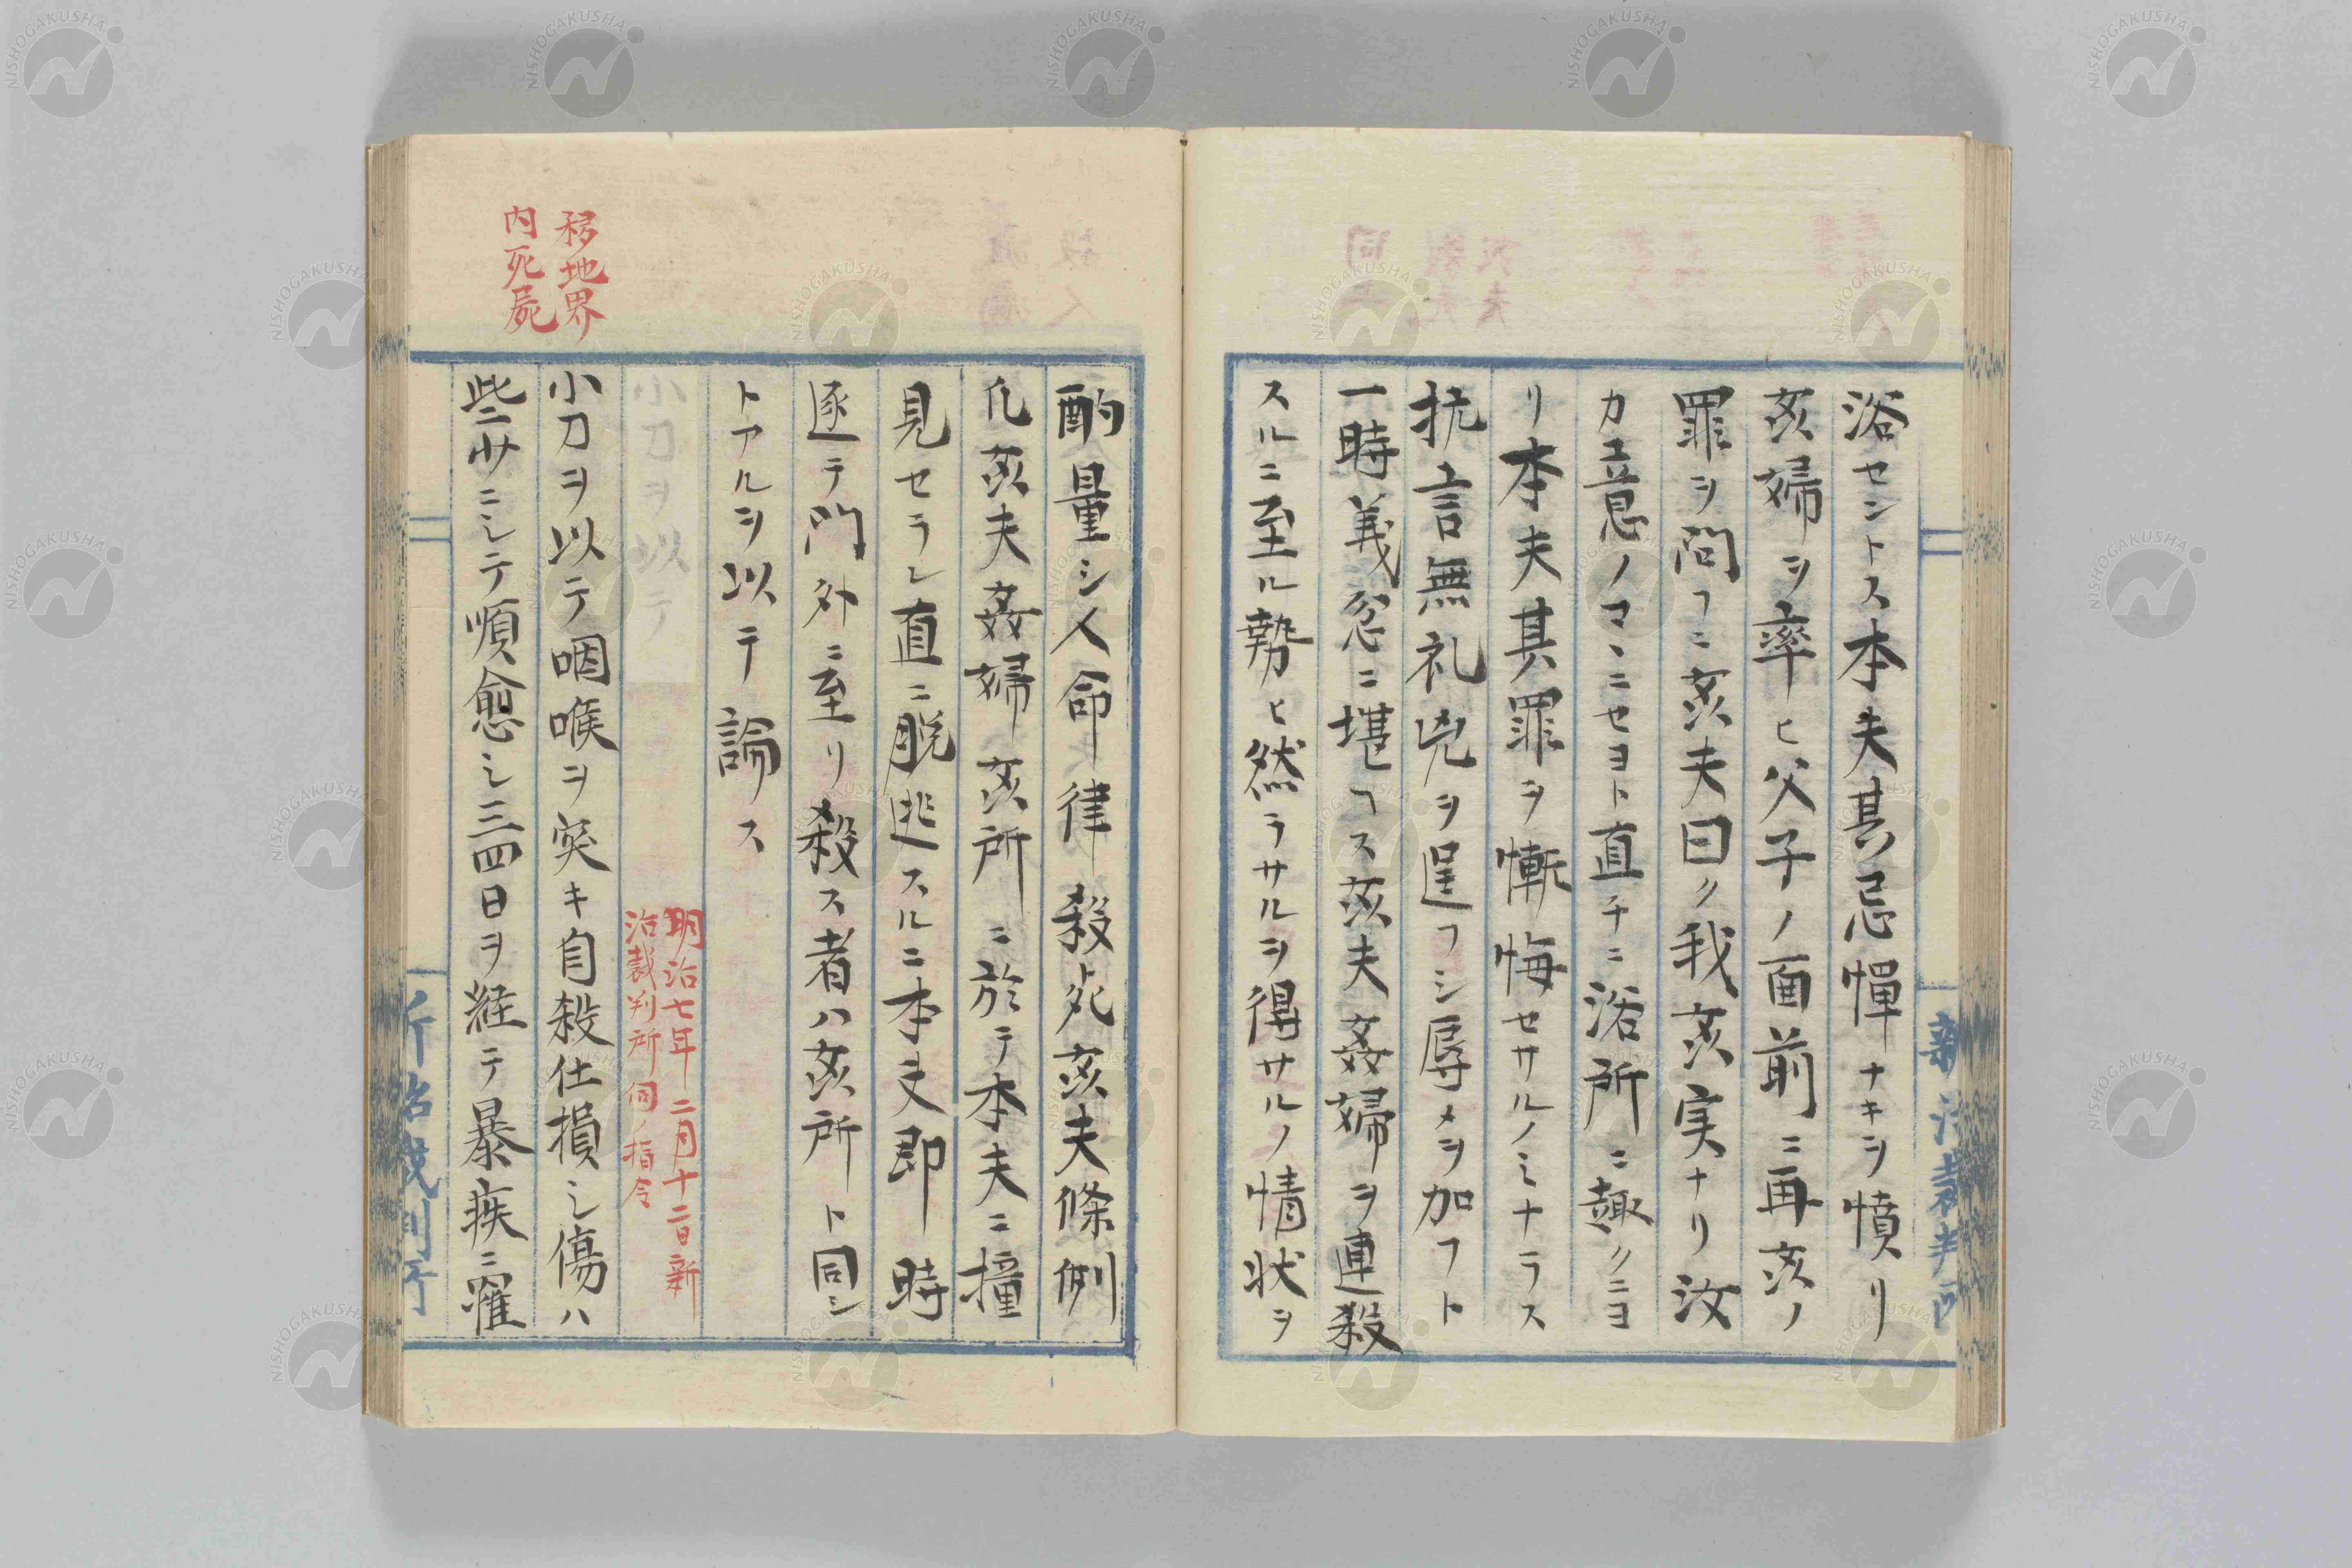 浴セントス本夫其忌憚ナキヲ憤リ
姦婦ヲ率ヒ父子ノ面前ニ再姦ノ
罪ヲ問フニ姦夫曰ク我姦実ナリ汝
カ意ノマヽニセヨト直チニ浴所ニ趣クニヨ
リ本夫其罪ヲ慚悔セサルノミナラス
抗言無礼兇ヲ逞フシ辱メヲ加フト
一時義忿ニ堪ヘス姦夫姦婦ヲ連殺
スルニ至ル勢ヒ然ラサルヲ得サルノ情状ヲ
新治裁判所
酌量シ人命律殺死姦夫條例
凡姦夫姦婦姦所ニ於テ本夫ニ撞
見セラレ直ニ脱逃スルニ本夫即時
逐テ門外ニ至リ殺ス者ハ姦所ト同シ
トアルヲ以テ論ス
明治七年二月十二日新
治裁判所伺ノ指令
移地界
内死屍
小刀ヲ以テ咽喉ヲ突キ自殺仕損シ傷ハ
些少ニシテ順愈シ三四日ヲ経テ暴疾ニ罹
新治裁判所
NISHOGAKUSHA